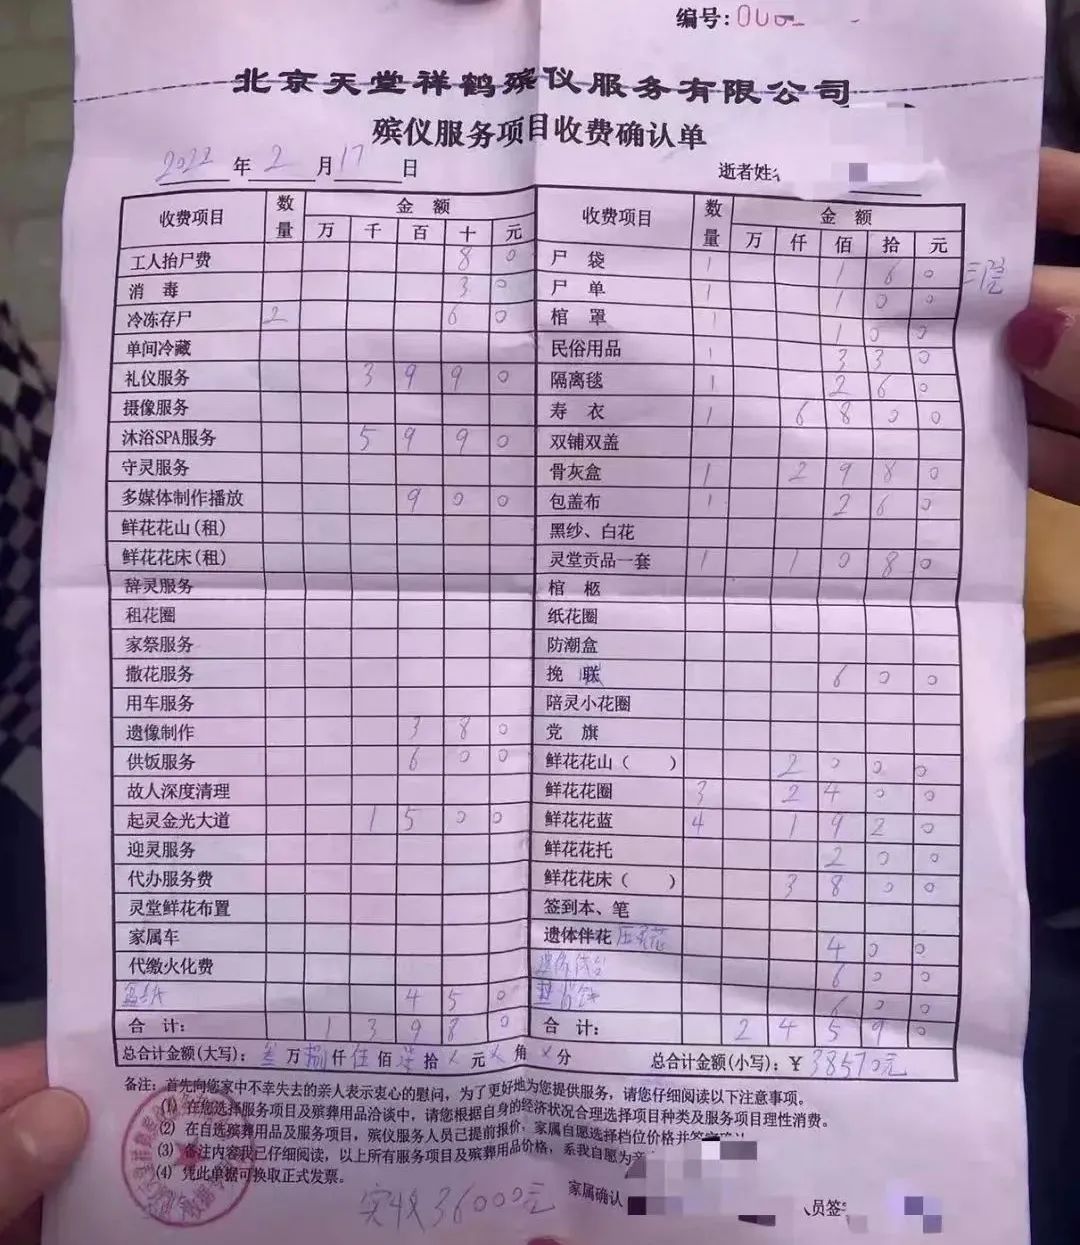 编号:
北京天堂祥鹤殡仪服务有限公司
殡仪服务项目收费确认单
2022 年 2 月 17 日 逝者姓名
收费项目 数量 金 额 收费项目 数量 金 额
万 千 百 十 元 万 仟 佰 拾 元
工人抬尸费 8 0 尸 袋 1 1 6 0
消 毒 3 0 尸 单 1 1 0 0
冷冻存尸 2 6 0 棺 罩 1 1 0 0
单间冷藏 民俗用品 1 3 3 0
礼仪服务 3 9 9 0 隔离毯 1 2 6 0
摄像服务 寿 衣 1 6 8 0 0
沐浴SPA服务 5 9 9 0 双铺双盖
守灵服务 骨灰盒 1 2 9 8 0
多媒体制作播放 9 0 0 包盖布 1 2 6 0
鲜花花山(租) 黑纱、白花
鲜花花床(租) 灵堂贡品一套 1 1 0 8 0
辞灵服务 棺 柩
租花圈 纸花圈
家祭服务 防潮盒
撒花服务 挽 联 6 0 0
用车服务 陪灵小花圈
遗像制作 3 8 0 党 旗
供饭服务 6 0 0 鲜花花山( ) 2 0 0 0
故人深度清理 鲜花花圈 3 2 4 0 0
起灵金光大道 1 5 0 0 鲜花花蓝 4 1 9 2 0
迎灵服务 鲜花花托 2 0 0
代办服务费 鲜花花床( ) 3 8 0 0
灵堂鲜花布置 签到本、笔
家属车 遗体伴花 4 0 0
代缴火化费 6 0 0
4 5 0 6 0 0
合 计: 1 3 9 8 0 合 计: 2 4 5 9 0
总合计金额(大写): 叁 万 捌 仟 伍 佰 柒 拾 元 角 分 总合计金额(小写): ¥38570元
备注: 首先向您家中不幸失去的亲人表示衷心的慰问，为了更好地为您提供服务，请您仔细阅读以下注意事项。
(1) 在您选择服务项目及殡葬用品洽谈中，请您根据自身的经济状况合理选择项目种类及服务项目理性消费。
(2) 在自选殡葬用品及服务项目，殡仪服务人员已提前报价，家属自愿选择档位价格并签字确认
(3) 备注内容我已仔细阅读，以上所有服务项目及殡葬用品价格，系我自愿为
(4) 凭此单据可换取正式发票。
实收36000元 家属确认 员签